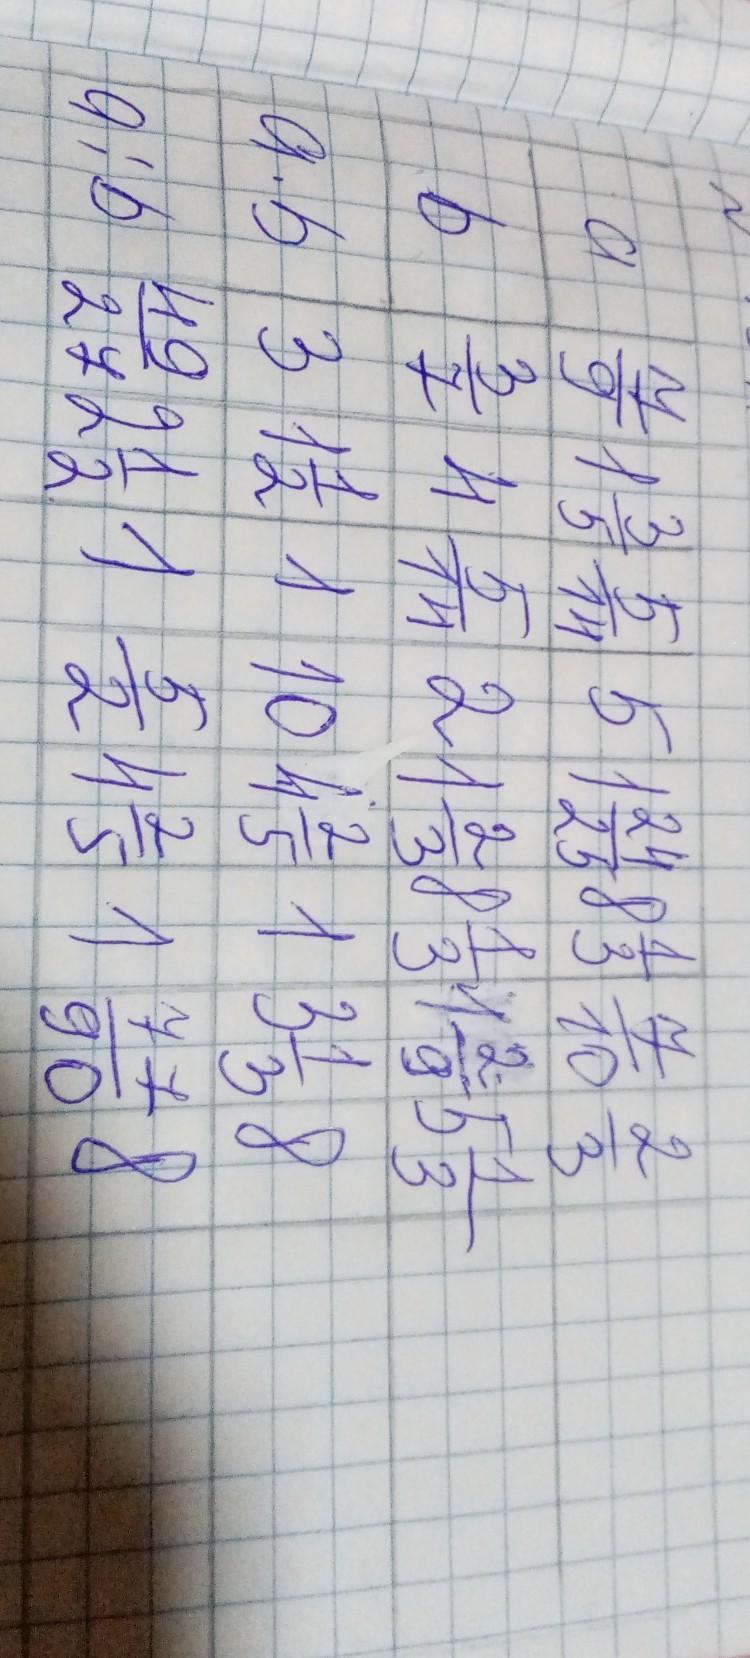 a 7/9 1 3/5 5/14 5 1 24/25 8 1/3 7/10 2/3
b 3/7 4 5/14 2 1 2/3 8 1/3 1 2/9 5 1/3
a·b 3 1 1/2 1 10 4 2/5 1 3 1/3 8
a:b 49/27 2 1/2 1 5/2 4 2/5 1 77/90 8